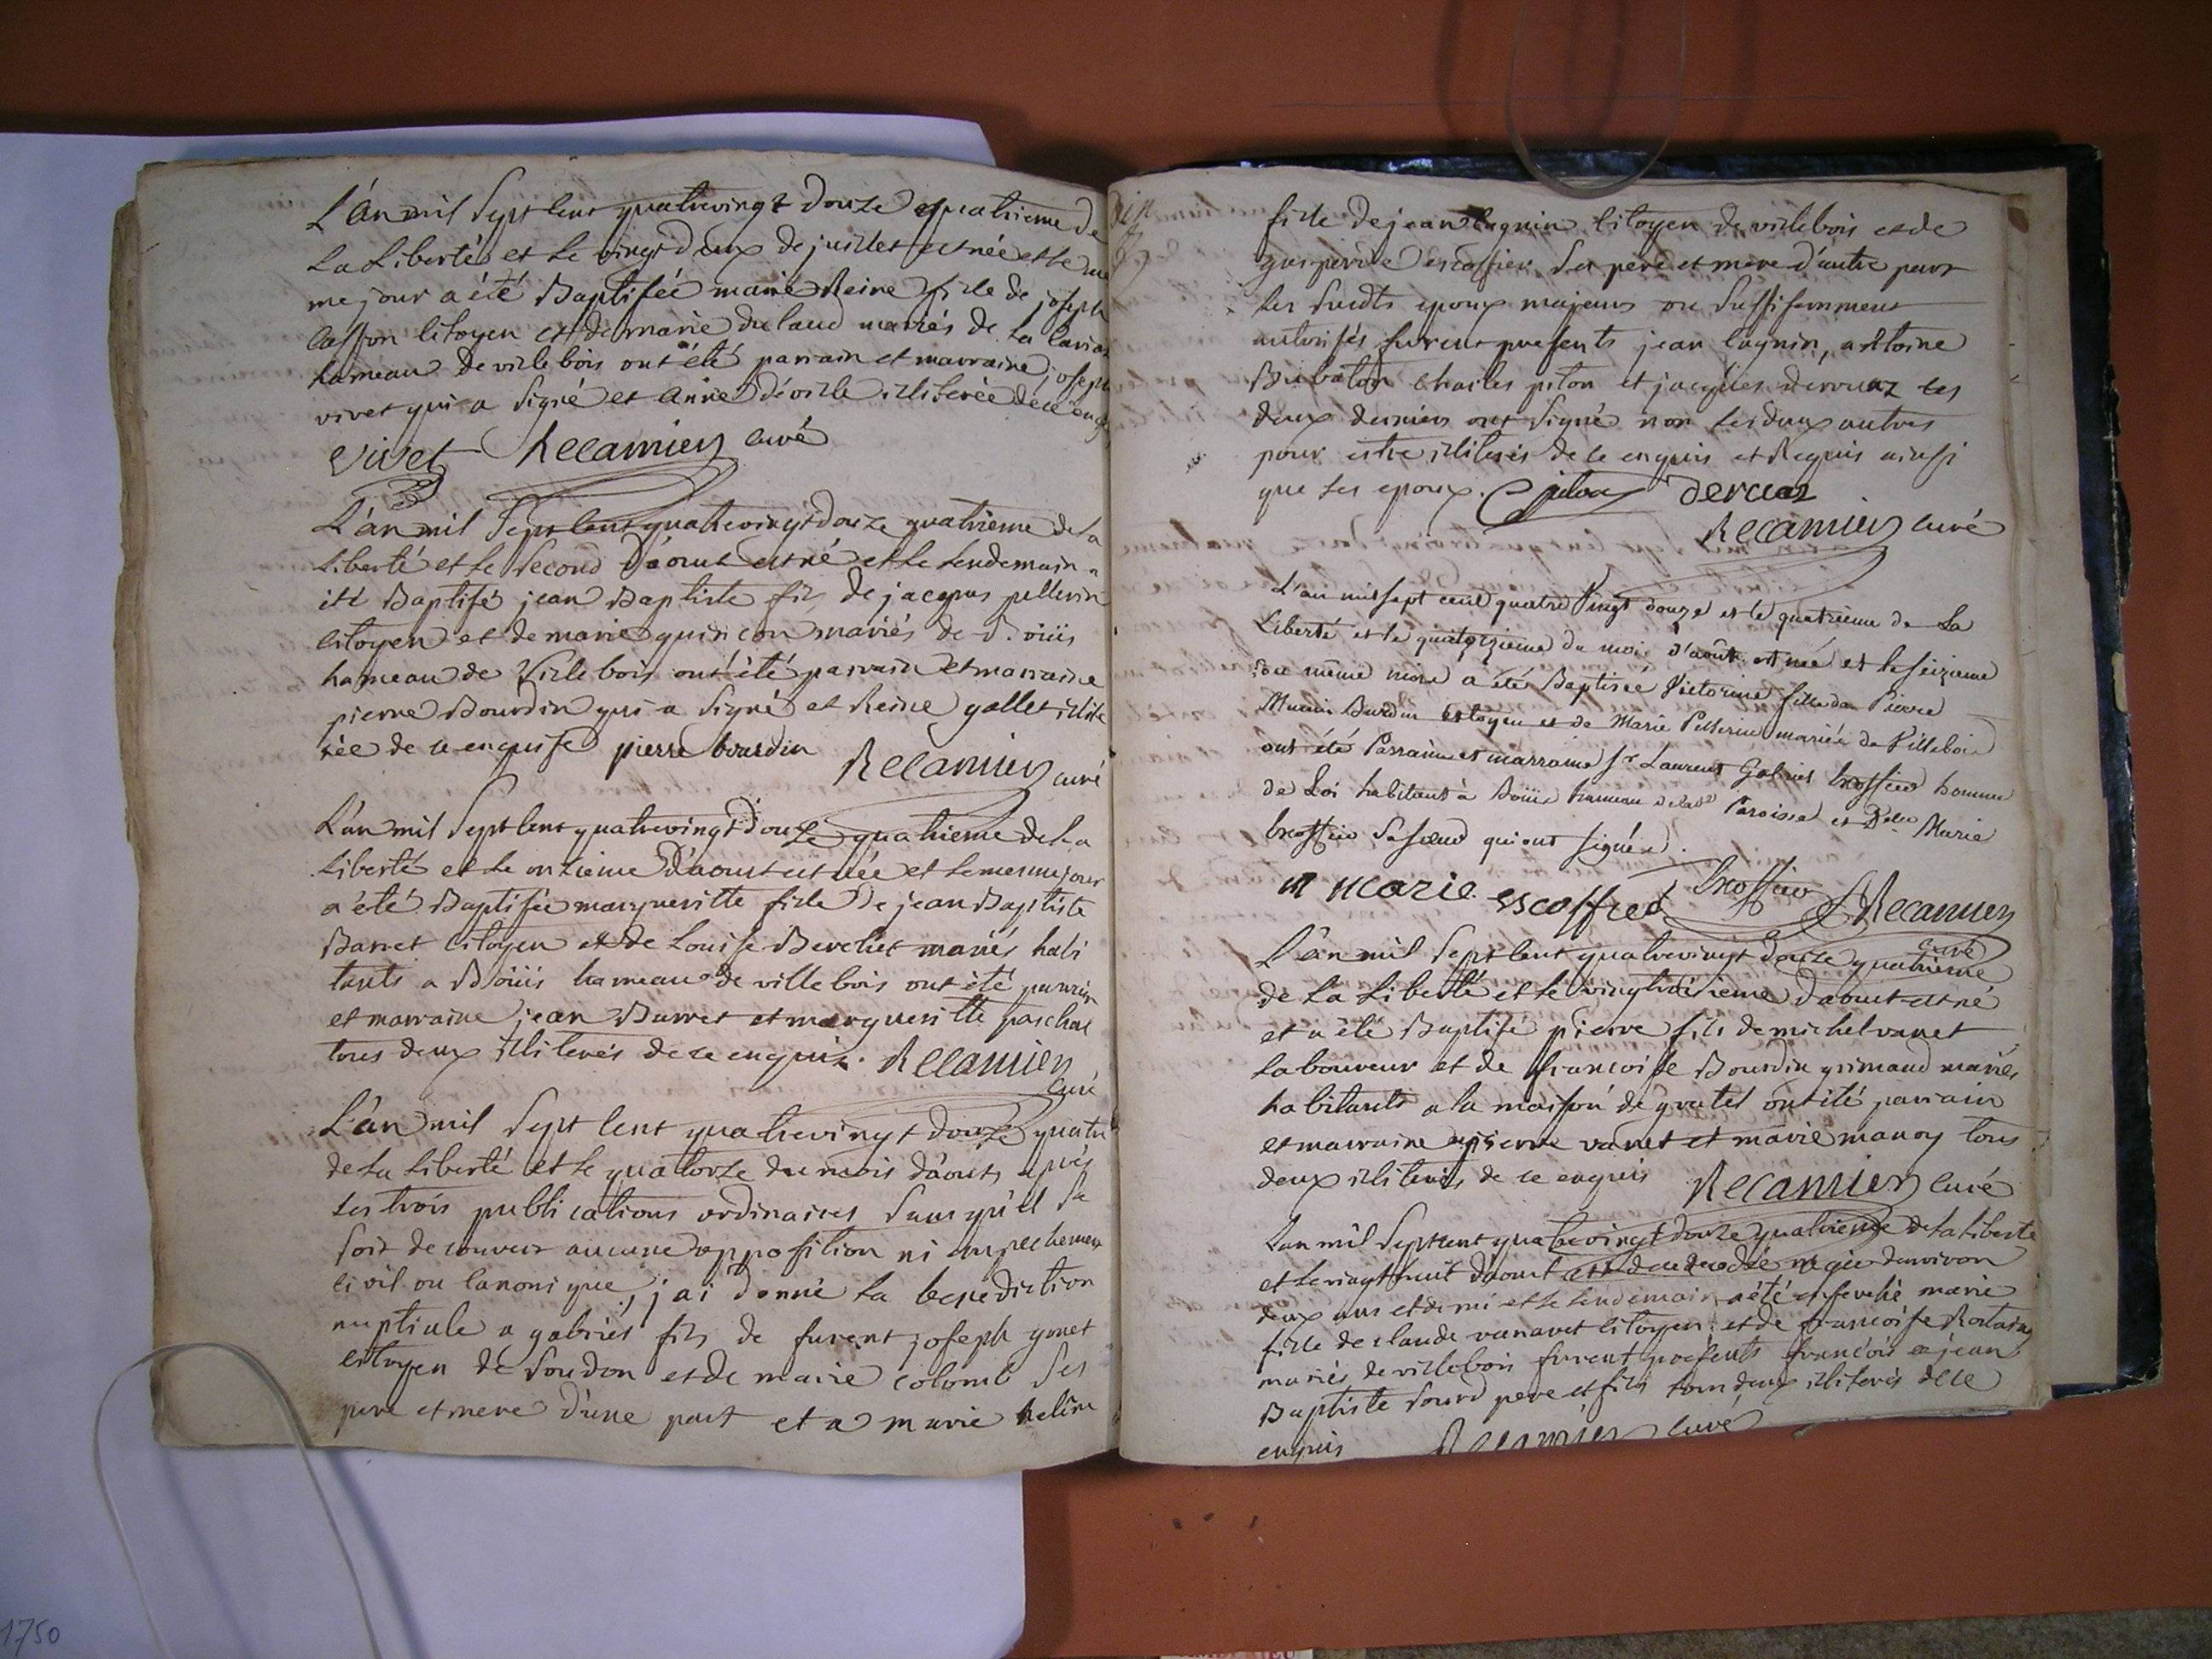 L'an mil sept cent quatrevingt douze quatrieme de
La Liberté et le vingt deux de juillet est née et le me
me jour a été Baptisée marie Reine fille de joseph
Casson Citoyen et de marie dulaud mariés de La
hameau de villebois ont été parrain et marraine joseph
vivet qui a signé et anne déville illiterée de ce enq
Vivet Recamier curé
L'an mil sept cent quatrevingt douze quatrieme de la
Liberté et le second d'aoust est né et le lendemain a
été Baptisé jean Baptiste fils de jacques pellerin
citoyen et de marie quinson mariés de B. oüis
hameau de Villebois ont été parrain et marraine
pierre Bourdin qui a signé et Reine gallet illite
rée de ce enquise pierre bourdin Recamier curé
L'an mil sept cent quatrevingt douze quatrieme de La
Liberté et le onzieme d'aoust est née et le meme jour
a été Baptisée margueritte fille de jean Baptiste
Barret Citoyen et de Louise Berchet mariés habi
tants a Boüis hameau de villebois ont été parrain
et marraine jean Barret et margueritte paschal
tous deux illiterés de ce enquis. Recamier
curé
L'an mil sept cent quatrevingt douze quatr
de La Liberté et le quatorze du mois d'aout, après
les trois publications ordinaires sans qu'il se
soit decouvert aucune opposition ni empechement
civil ou canonique, j'ai donné la benediction
nuptiale a gabriel fils de furent joseph gonet
citoyen de soudon et de marie colomb ses
pere et mere d'une part et a marie
fille de jean cagnin Citoyen de villebois et de
escoffier ses pere et mere d'autre part
les susdts epoux majeurs ou suffisemment
autorisés furent presents jean cagnin, antoine
Bribaton Charles piton et jacques dervaz les
deux derniers ont signé non les deux autres
pour estre illiterés de ce enquis et Requis ainsi
que les epoux. Cpiton dervaz
Recamier curé
L'an mil sept cent quatre Vingt douze et le quatrieme de La
Liberté et le quatorzieme du mois d'août est née et le seizieme
du même mois a été Baptisée Victorine fille de Pierre
Burdin Citoyen et de Marie Pellerin mariés de Villebois
ont été Parrain et marraine Sr Laurent Gabriel Escoffier homme
de Loi habitant à Boüis hameau de lad Paroisse et Delle Marie
Escoffier sa soeur qui ont signés.
marie escoffier Escoffier Recamier
curé
L'an mil sept cent quatrevingt douze quatrieme
de La Liberté et le vingtroisieme d'aoust est né
et a été Baptisé pierre fils de michel varret
Laboureur et de françoise Bourdin grimaud mariés
habitants a la maison de gratet ont été parrain
et marraine pierre varret et marie manoy tous
deux illiterés de ce enquis Recamier curé
L'an mil sept cent quatrevingt douze quatrieme de la Liberte
et le vingt huit d'aout est decedée agée d'environ
deux ans et demi et le lendemain a été ensevelie marie
fille de claude vanavet Citoyen et de françoise Rostaing
mariés de villebois furent presents françois et jean
Baptiste sourd pere et fils tous deux illiterés de ce
enquis Recamier curé
1750